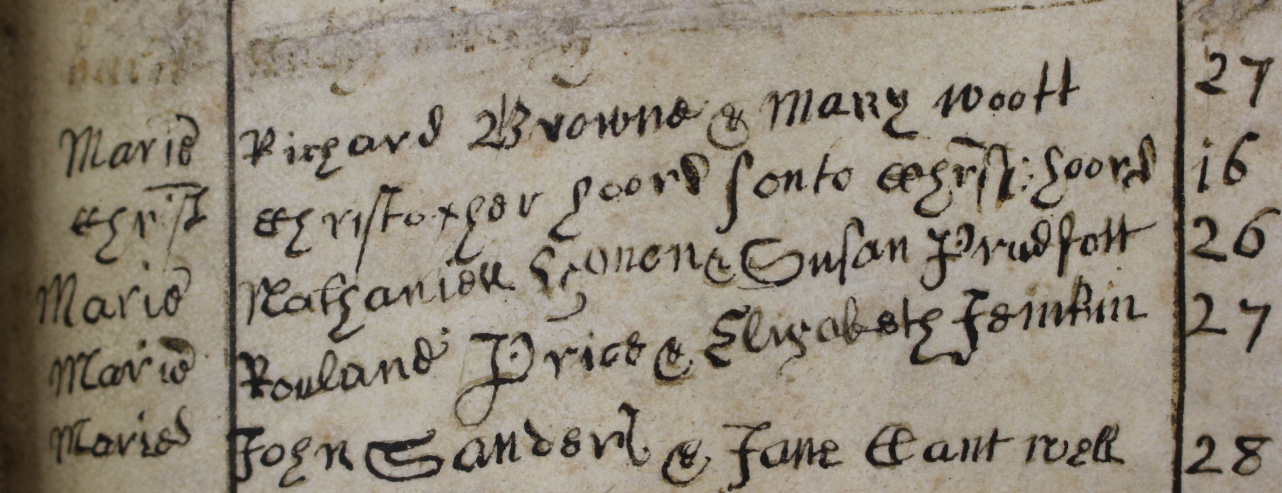 Maried Richard Browne & Mary Woott 27
Christ Christopher Hoord son to Christ: Hoord 16
Maried Nathaniell & Susan Prudfott 26
Maried Rouland Price & Elizabeth Jemkin 27
Maried John Sanders & Jane Cantwell 28